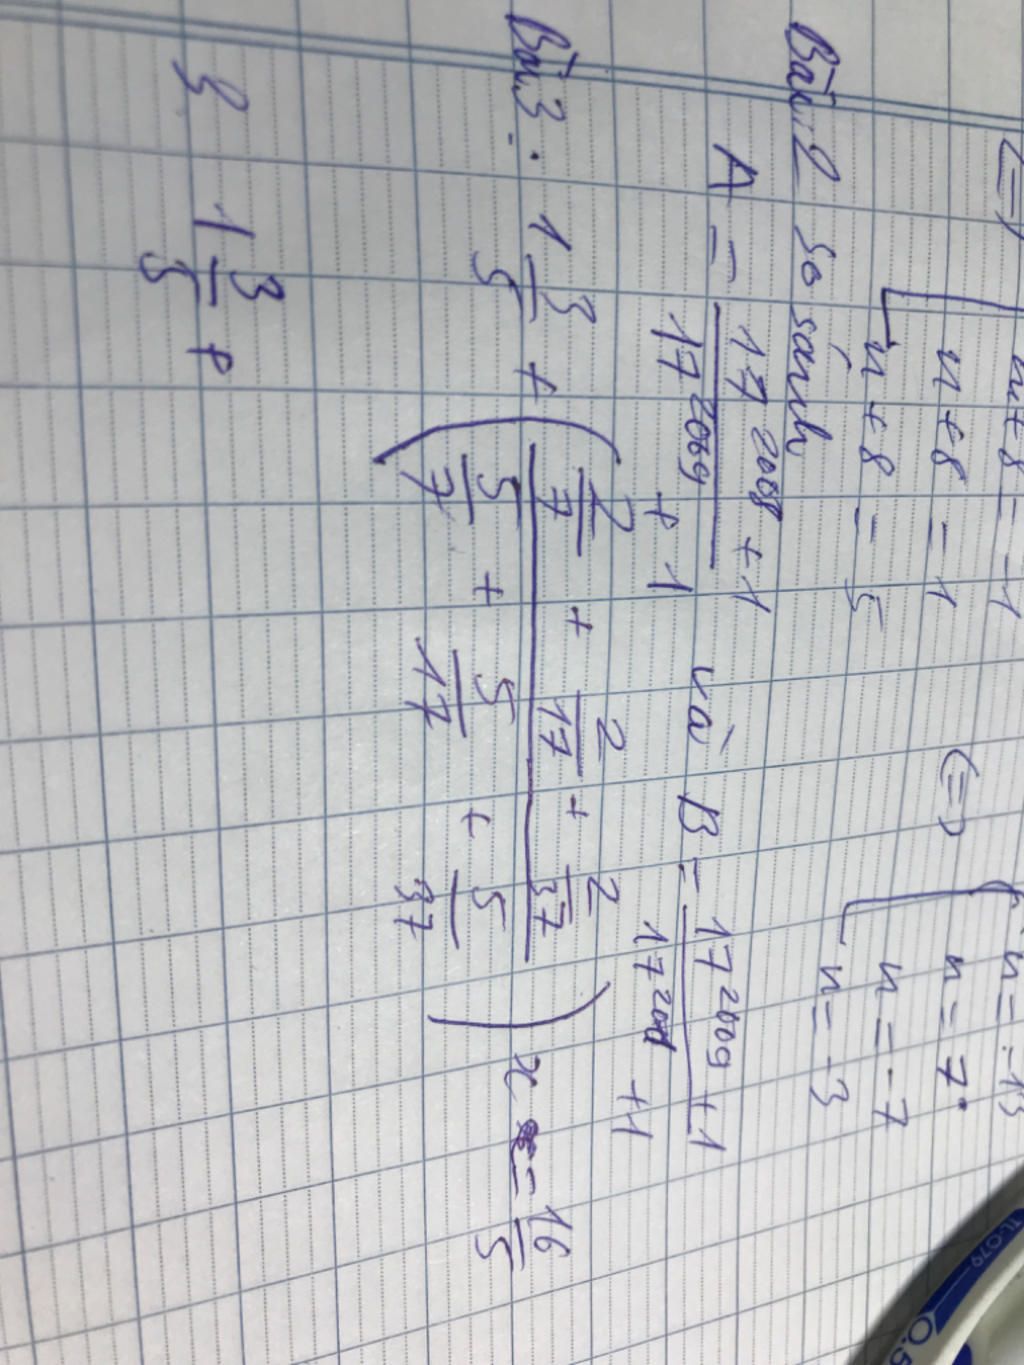 n+8 = -1
<=> n+8 = 1 <=> n = -7
n+8 = 5 n = -3
n = 7
Bài 2 so sánh
A = (17^2008 + 1)/(17^2009 + 1) và B = (17^2009 + 1)/(+1)
Bài 3. 1 3/5 + ( (2/7 + 2/17 + 2/37)/(5/7 + 5/17 + 5/37) ) x = 16/5
1 3/5 +
TL-079
0.5